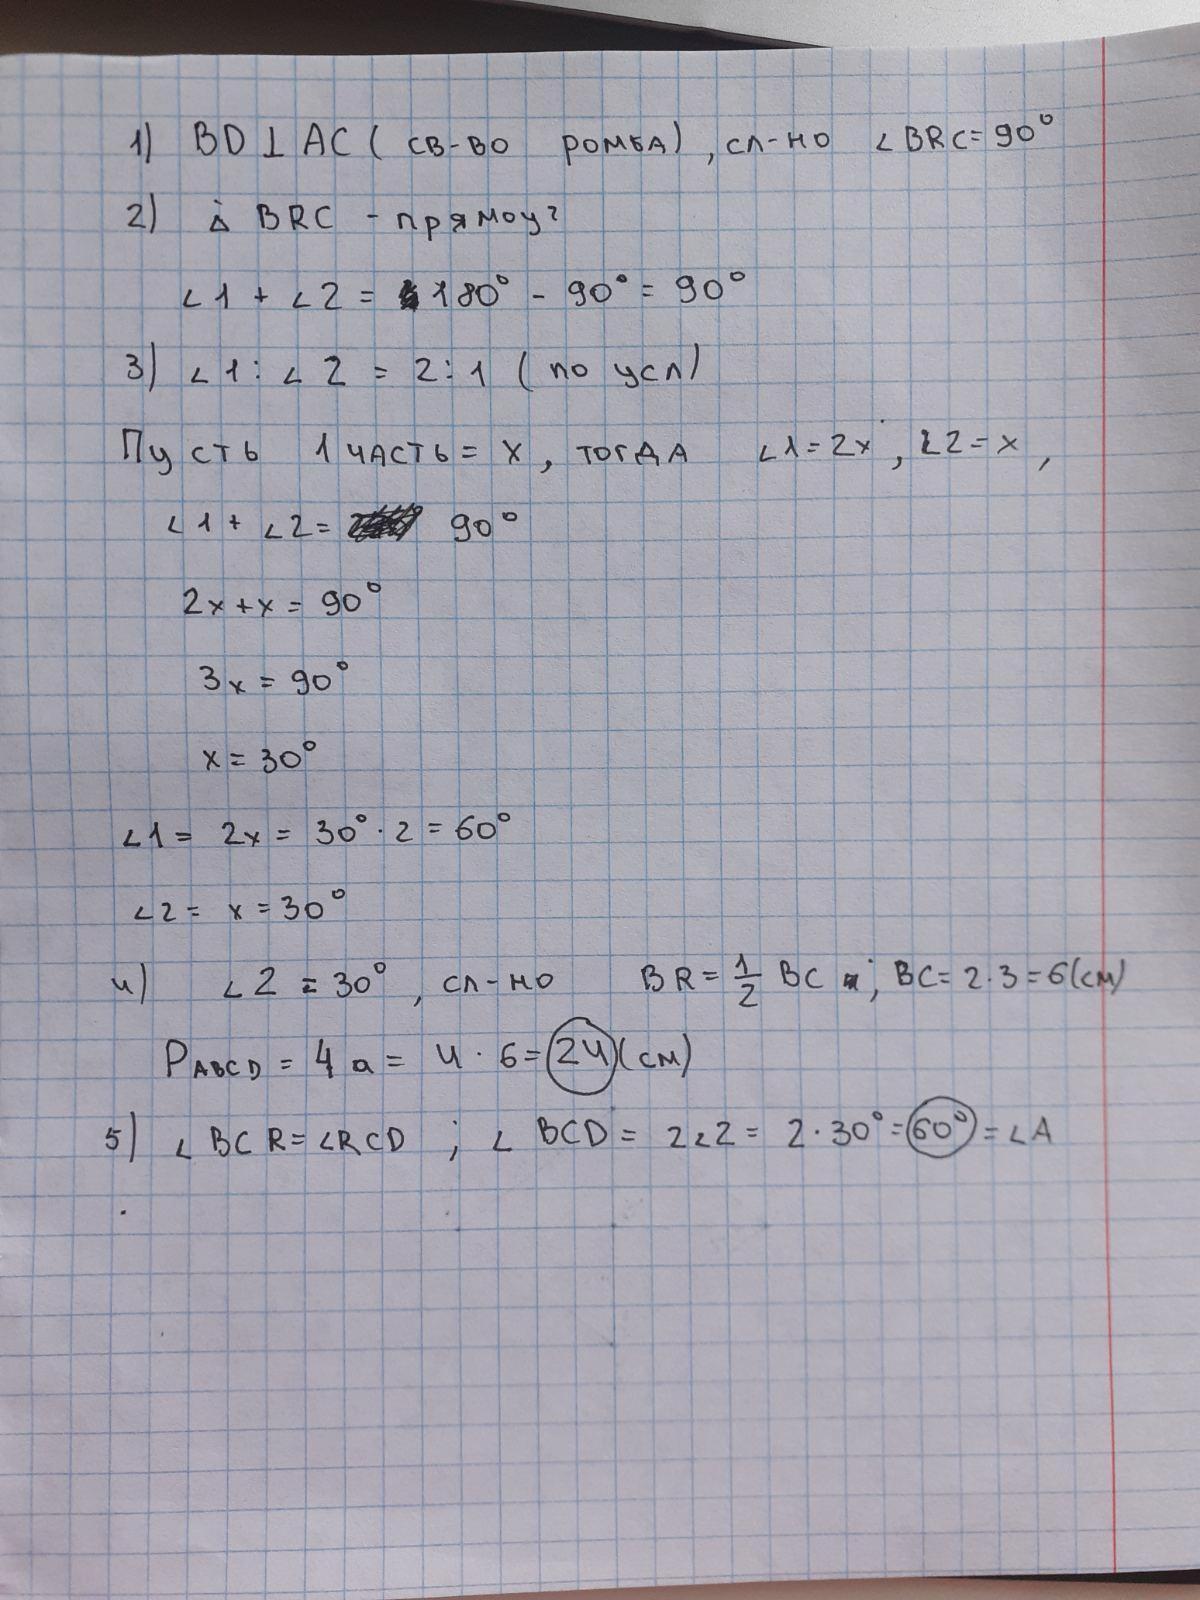 1) BD ⊥ AC ( св-во ромба) , сл-но ∠BRC = 90°
2) Δ BRC - прямоуг
∠1 + ∠2 = 180° - 90° = 90°
3) ∠1 : ∠2 = 2 : 1 ( по усл)
Пусть 1 часть = x , тогда ∠1 = 2x , ∠2 = x ,
∠1 + ∠2 = 90°
2x + x = 90°
3x = 90°
x = 30°
∠1 = 2x = 30° · 2 = 60°
∠2 = x = 30°
4) ∠2 = 30° , сл-но BR = 1/2 BC ; BC = 2 · 3 = 6 (см)
P ABCD = 4a = 4 · 6 = 24 (см)
5) ∠BCR = ∠RCD ; ∠BCD = 2∠2 = 2 · 30° = 60° = ∠A